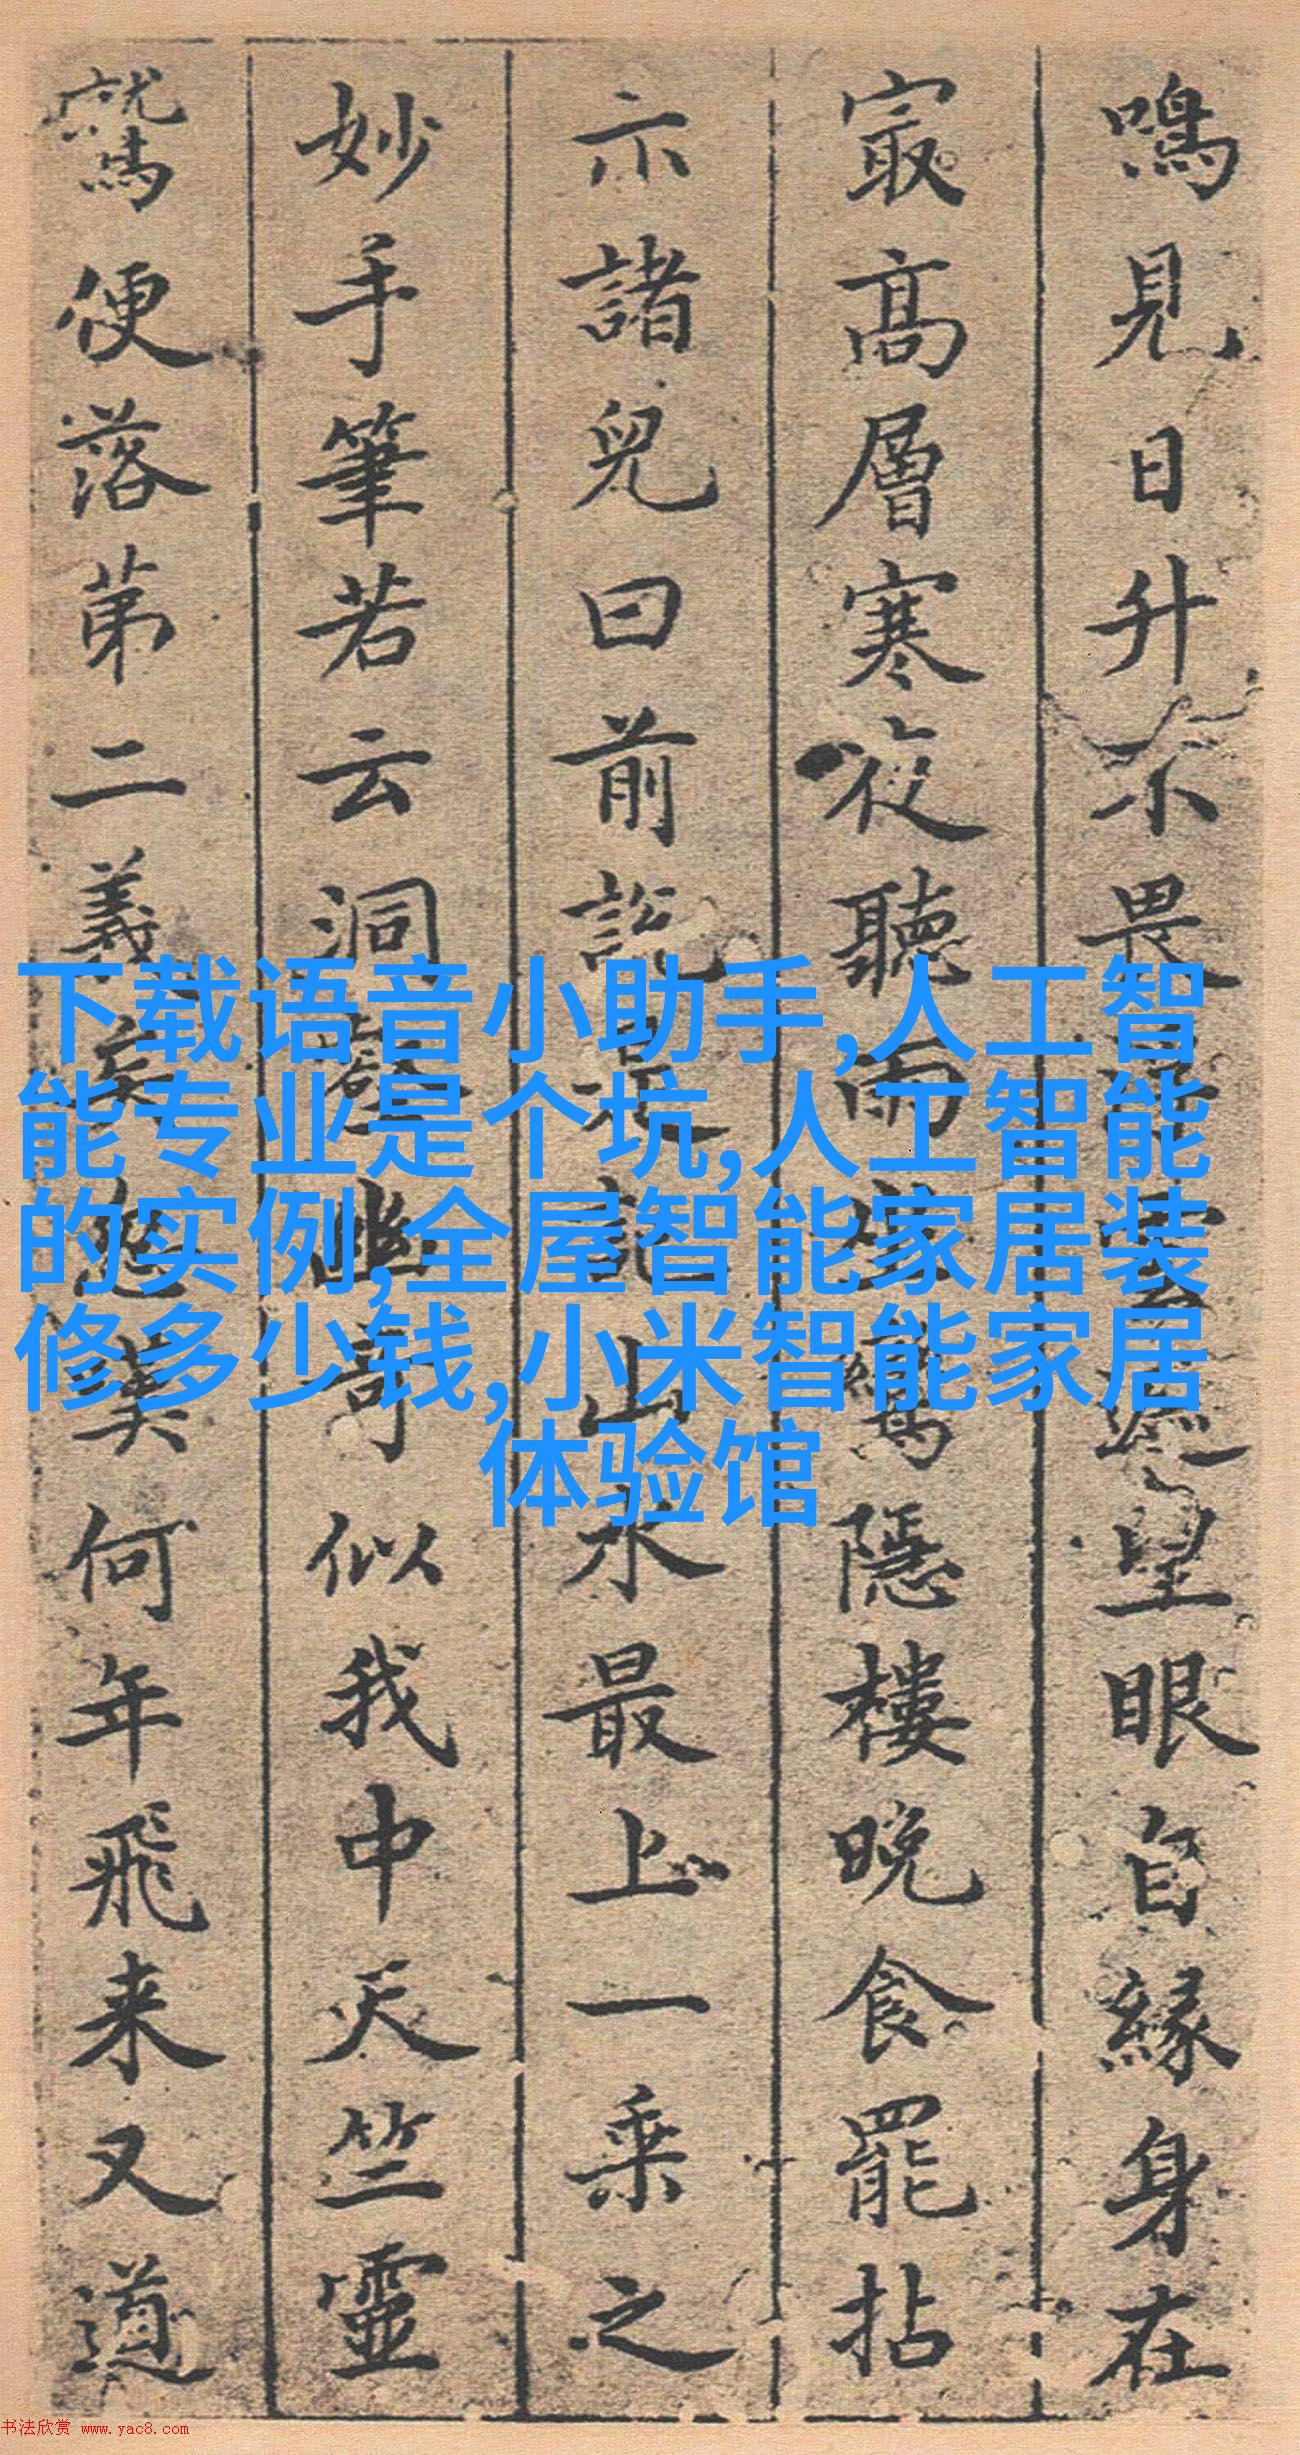 鳴見日升不畏浮雲遮望眼自緣身在
冣高層寒夜聽雨萬隱樓晚食罷拈
示諸兒曰前說是山水最上一乘之
妙手筆若云洞壑幽奇似我中天竺靈
鷲便落第二義矣何年飛来又道
下载语音小助手,人工智
能专业是个坑,人工智能
的实例,全屋智能家居装
修多少钱,小米智能家居
体验馆
书法欣赏 www.yac8.com